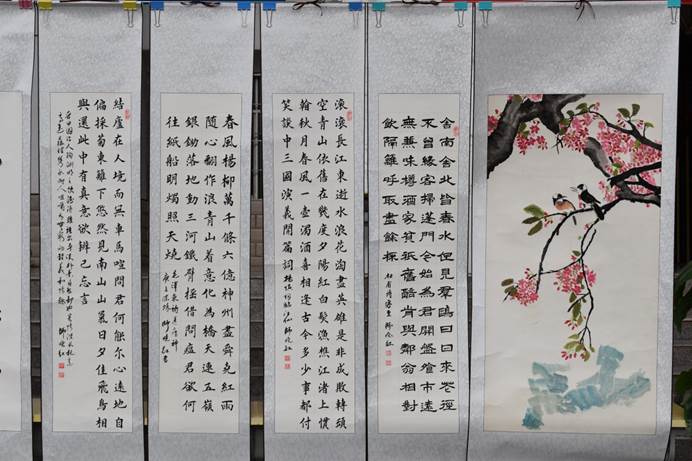 結廬在人境而無車馬喧問君何能尔心遠地自
偏採菊東籬下悠然見南山山氣日夕佳飛鳥相
與還此中有真意欲辨已忘言
春風楊柳萬千條六億神州盡舜堯紅雨
隨心翻作浪青山着意化為橋天連五嶺
銀鋤落地動三河鐵臂搖借問瘟君欲何
往紙船明燭照天燒
毛澤東詩送瘟神
滾滾長江東逝水浪花淘盡英雄是非成敗轉頭
空青山依舊在幾度夕陽紅白髮漁樵江渚上慣
看秋月春風一壺濁酒喜相逢古今多少事都付
笑談中三國演義開篇詞
舍南舍北皆春水但見群鷗日日來花徑
不曾緣客掃蓬門今始為君開盤飧市遠
無兼味樽酒家貧只舊醅肯與鄰翁相對
飲隔籬呼取盡餘杯